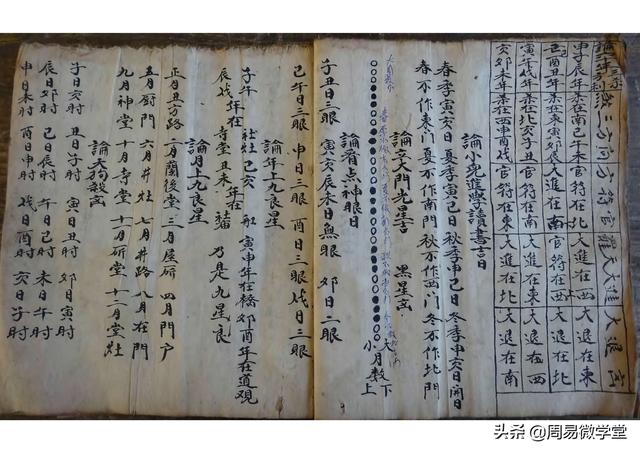 三方向方符官羅天大進大退
申子辰年煞在南巳午未 官符在北 大進在西 大退在東
酉丑年煞在東寅卯辰 大進在南 官符在西 大退在北
寅午戌年煞在北亥子丑 官符在南 大進在東 大退在西
亥卯未年煞在西申酉戌 官符在東 大進在北 大退在南
論小児進學讀書吉日
春季寅亥日 夏季寅巳日 秋季申巳日 冬季申亥日開日
春不作東門 夏不作南門 秋不作西門 冬不作北門
論大門光星吉 黑星凶
大 下
小月數上
論看点神眼日
子丑日三眼 寅亥辰未日無眼 卯日二眼
巳午日三眼 申日三眼 酉日三眼 戌日三眼
論年上九良星
子午 社灶 巳亥 船 寅申年在橋 卯酉年在道觀
辰戌年在寺堂 丑未年在 乃是九星良
論月上九良星
正月丑方路 二月蘭後堂 三月屋研 四月門户
五月厨門 六月井灶 七月井路 八月在門
九月神堂 十月寺堂 十一月研堂 十二月堂灶
論天狗殺凶
子日亥时 丑日子时 寅日丑时 卯日寅时
辰日卯时 巳日辰时 午日巳时 未日午时
申日未时 酉日申时 戌日酉时 亥日子时
头条 @周易微学堂